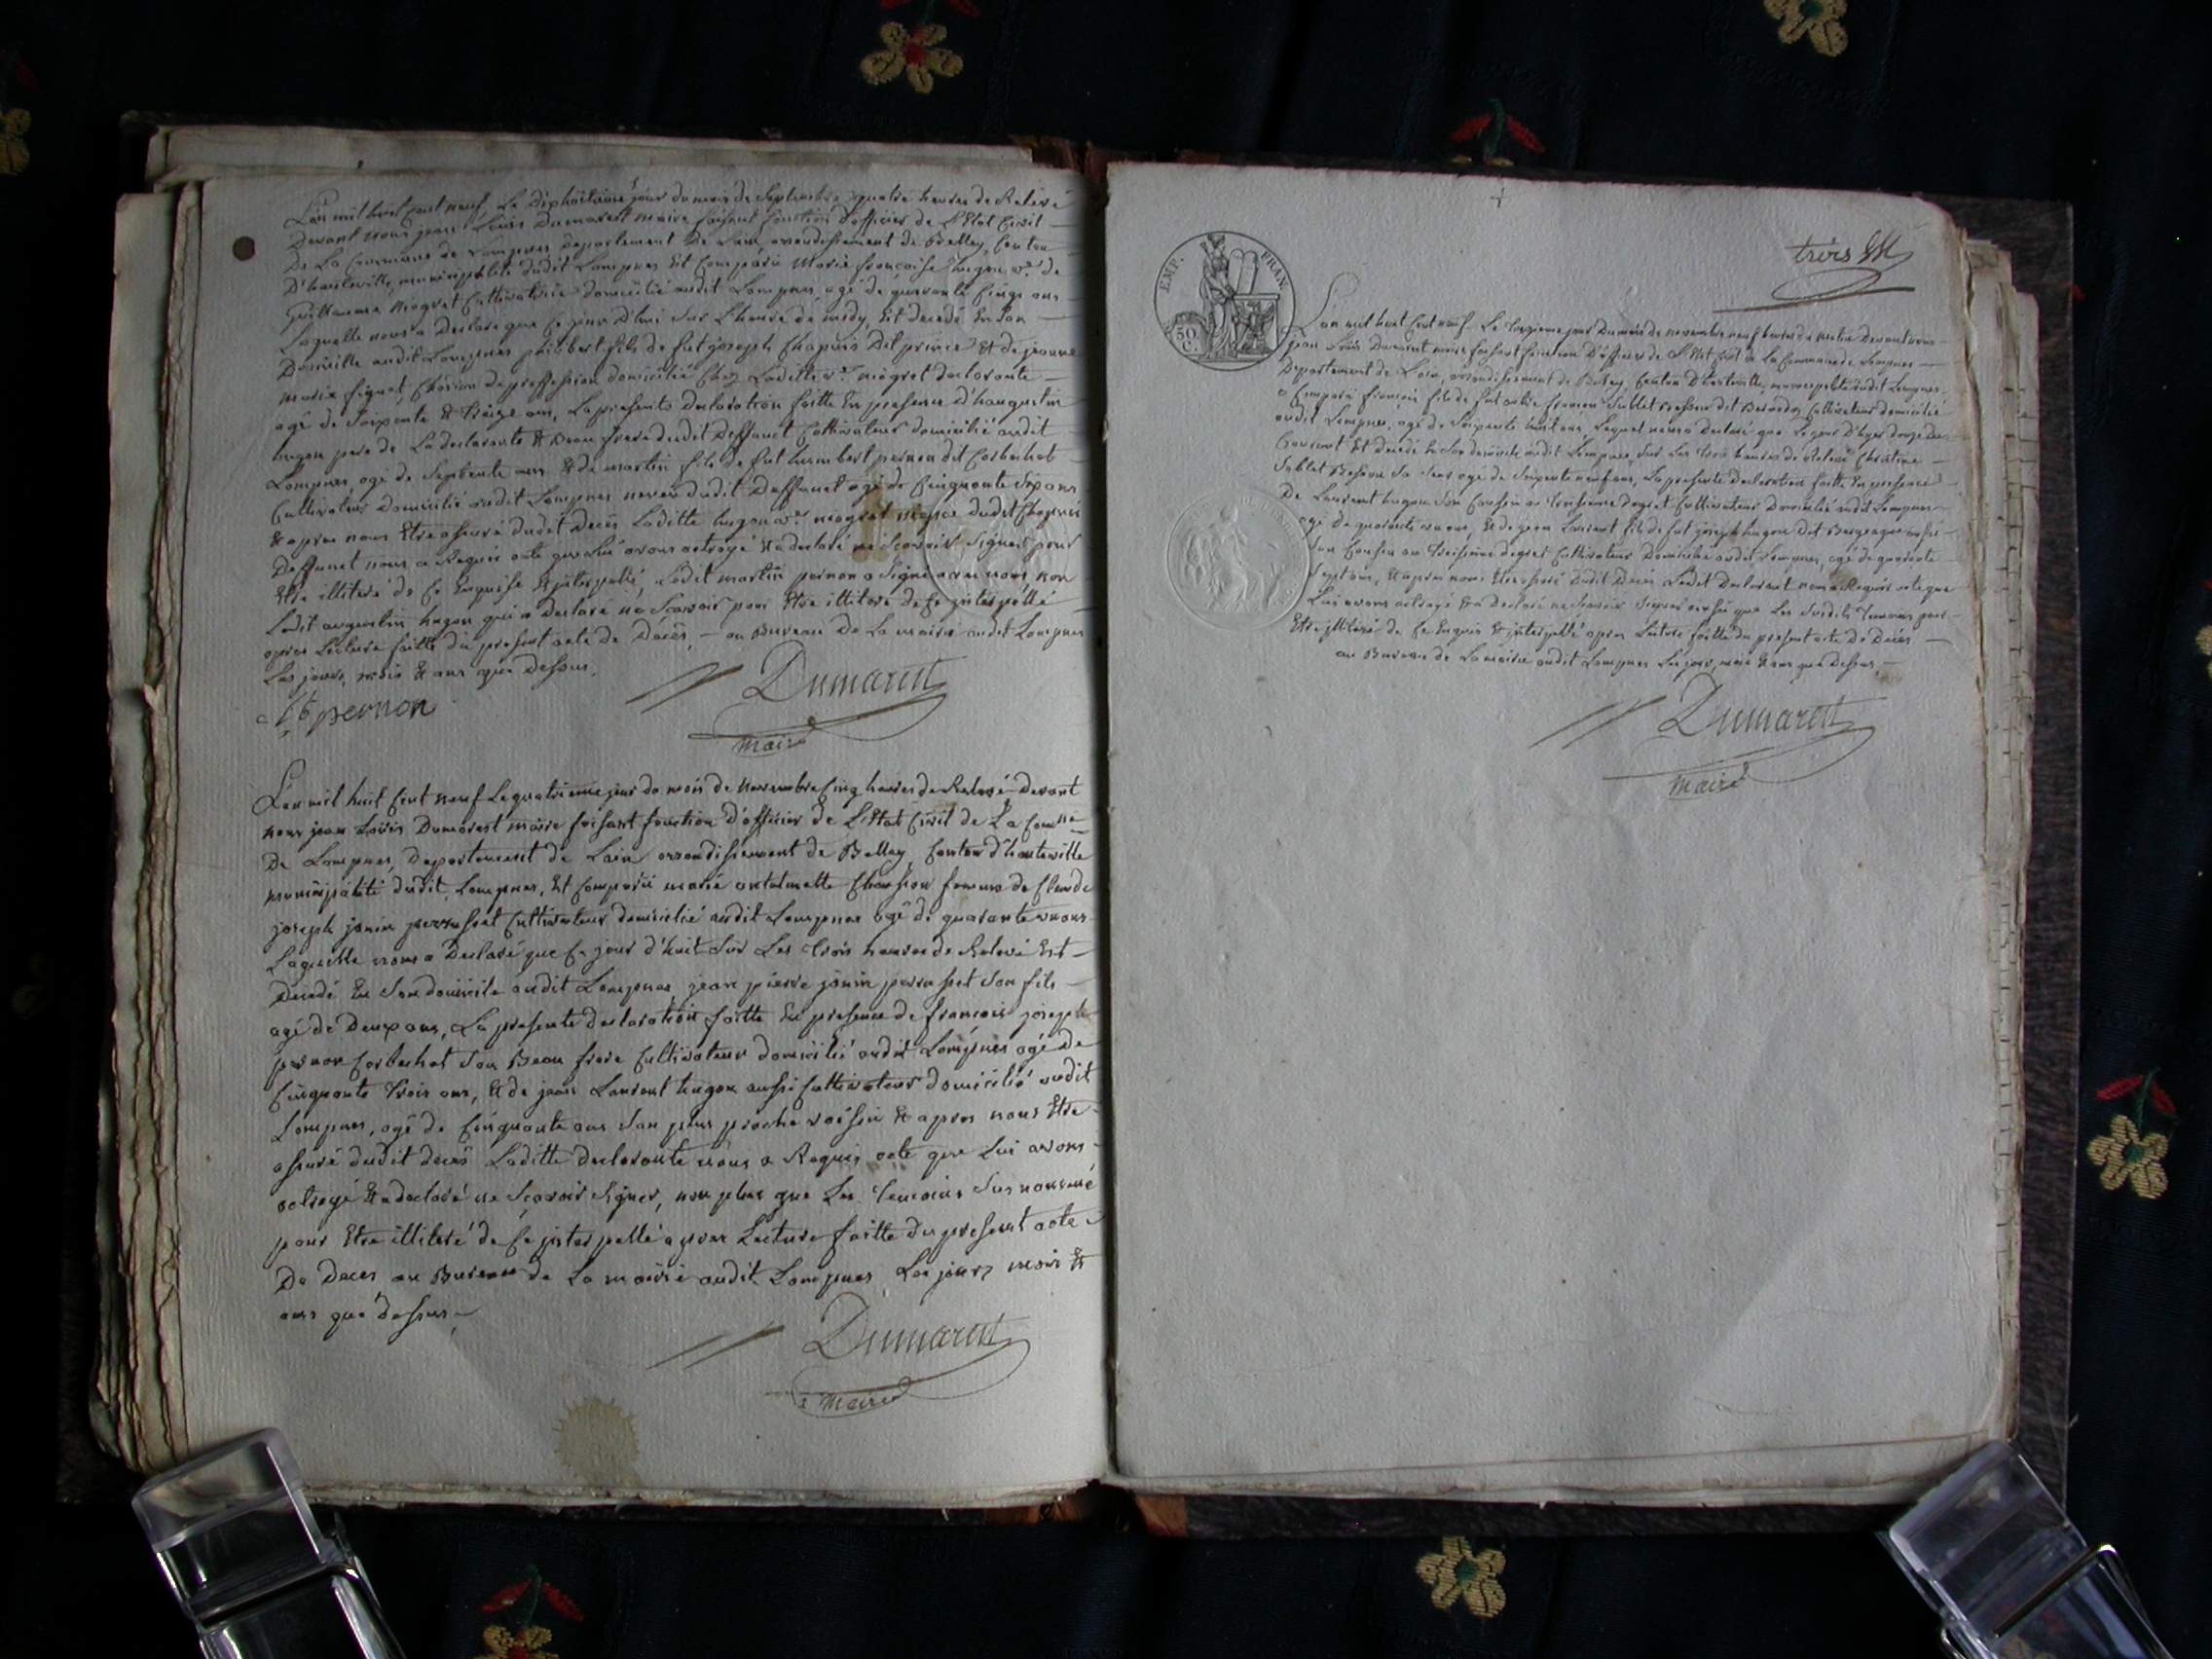 L'an mil huit Cent neuf, Le dixhuitieme jour du mois de Septembre quatre heures de Relevé
Devant nous jean Louis Dumarest maire faisant fonction d'officier de L'Etat Civil
De La Commune de Lompnes Departement De Lain, arrondissement de Belley, Canton
D'hauteville, municipalité dudit Lompnes Est Comparu Marie françoise hugon ve. de
Guillaume miogret Cultivatrice domicilié audit Lompnes, agé de quarante Cinq ans
Laquelle nous a Declaré que Ce jour D'hui Sur L'heure de midy, Est decedé En Son
Domicille audit Lompnes philibert fils de fut joseph Chapuis Dit prince & de jeanne
marie figuet, de proffession domicilié Chez Laditte ve. miogret declarante
agé de Soixente & Treize ans, La presente Declaration faitte En presence d'
hugon pere de La declarante & Beau frere dudit Deffunct Cultivateur domicilié audit
Lompnes, agé de Septente ans & de martin fils de fut humbert pernon dit Corbachot
Cultivateur Domicilié audit Lompnes neveu dudit Deffunct agé de Cinquante Six ans
& apres nous Etre assuré dudit Deces Laditte hugon ve. miogret dudit Chapuis
Deffunct nous a Requis acte que Lui avons octroyé & a declaré ne Scavoir Signer pour
Etre illiteré de Ce Enquise & interpellé, Ledit martin pernon a Signé avec nous non
Ledit hugon qui a Declaré ne Scavoir pour Etre illiteré de Ce interpellé
apres Lecture faitte du present acte de Décès, — au Bureau De La mairie audit Lompnes
Les jours, mois & ans que Dessus.
pernon
Dumarest
maire
L'an mil huit Cent neuf Le quatrieme jour du mois de Novembre Cinq heures de Relevé devant
nous jean Louis Dumarest maire faisant fonction d'officier de L'Etat Civil de La Comne
De Lompnes, Departement de Lain arrondissement de Belley, Canton d'hauteville
municipalité dudit Lompnes, Est Comparu marie antelmette femme de Claude
joseph janin perrusset Cultivateur domicilié audit Lompnes agé de quarante
Laquelle nous a Declaré que Ce jour d'huit Sur Les trois heures de Relevé Est
Decedé En Son domicile audit Lompnes jean pierre janin perrusset Son fils
agé de Deux ans, La presente declaration faitte En presence de francois joseph
pernon Corbachot Son Beau frere Cultivateur domicilié audit Lompnes agé de
Cinquante Trois ans, & de jean Laurent hugon aussi Cultivateur domicilié audit
Lompnes, agé de Cinquante ans Son plus proche voisin & apres nous Etre
assuré dudit deces Laditte declarante nous a Requis acte que Lui avons
octroyé & a declaré ne Scavoir Signer, non plus que Les Temoins Sus nommé
pour Etre illiteré de Ce interpellé apres Lecture faitte du present acte
De Deces au Bureau de La mairie audit Lompnes Les jours mois &
ans que dessus
Dumarest
maire
EMP. FRAN.
50 C.
trois
L'an mil huit Cent neuf Le Treizieme jour Du mois de novembre neuf heures du matin Devant nous
jean Louis Dumarest maire faisant fonction D'officier de L'Etat Civil de La Commune de Lompnes
Departement de Lain, arrondissement de Belley, Canton D'hauteville, municipalité dudit Lompnes,
a Comparu François fils de fut Sublet Besson dit Cultivateur domicilié
audit Lompnes, agé de Soixente huit ans, Lequel nous a Declaré que Le jour D'hyer douze du
Courant Est Decedé En Son domicile audit Lompnes, Sur Les trois heures de Relevé Christine
Sublet Besson Sa Seur agé de Soixente neuf ans, La presente Declaration faitte En presence
De Laurent hugon Son Cousin au Troisieme degret Cultivateur Domicilié audit Lompnes
agé De quarante ans, & de jean Laurent fils de fut joseph hugon Dit aussi
Son Cousin au Troisieme degret Cultivateur Domicilié audit Lompnes, agé de quarante
Sept ans, & apres nous Etre assuré Dudit Deces Ledit Declarant nous a Requis acte que
Lui avons octroyé & a declaré ne Scavoir Signer ainsi que Les Susdits Temoins pour
Etre illiteré de Ce Enquis & interpellé apres Lecture faitte du present acte De Deces
au Bureau de La mairie audit Lompnes Les jour, mois & ans que Dessus
Dumarest
maire